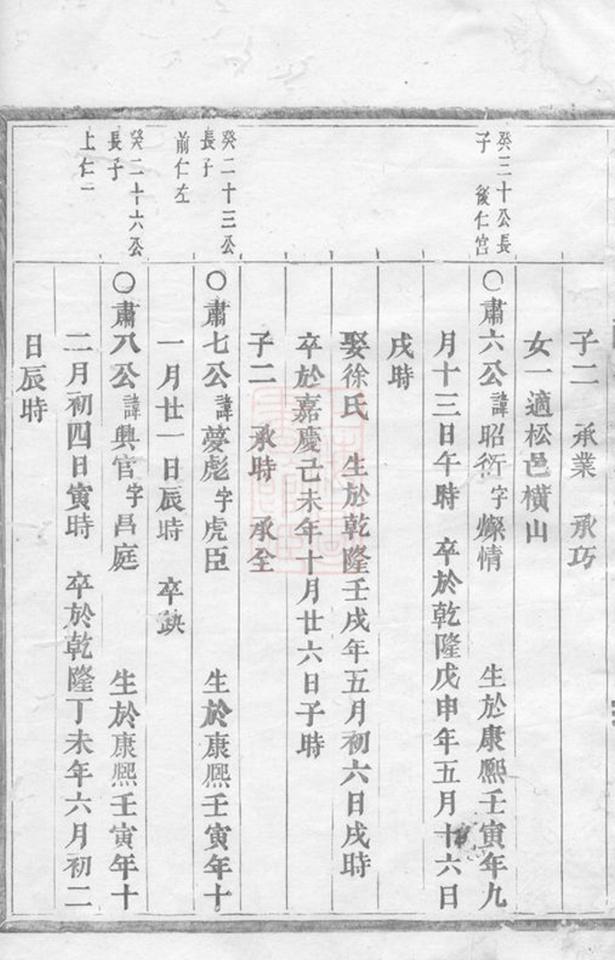 子二 承業 承巧
女一適松邑橫山
癸三十公長
子 後仁宫
○肅六公諱昭衍字燦情 生於康熙壬寅年九
月十三日午時 卒於乾隆戊申年五月十六日
戌時
娶徐氏 生於乾隆壬戌年五月初六日戌時
卒於嘉慶己未年十月廿六日子時
子二 承時 承全
癸二十三公
長子
前仁左
○肅七公諱夢彪字虎臣 生於康熙壬寅年十
一月廿一日辰時 卒缺
癸二十六公
長子
上仁一
○肅八公諱興官字昌庭 生於康熙壬寅年十
二月初四日寅時 卒於乾隆丁未年六月初二
日辰時